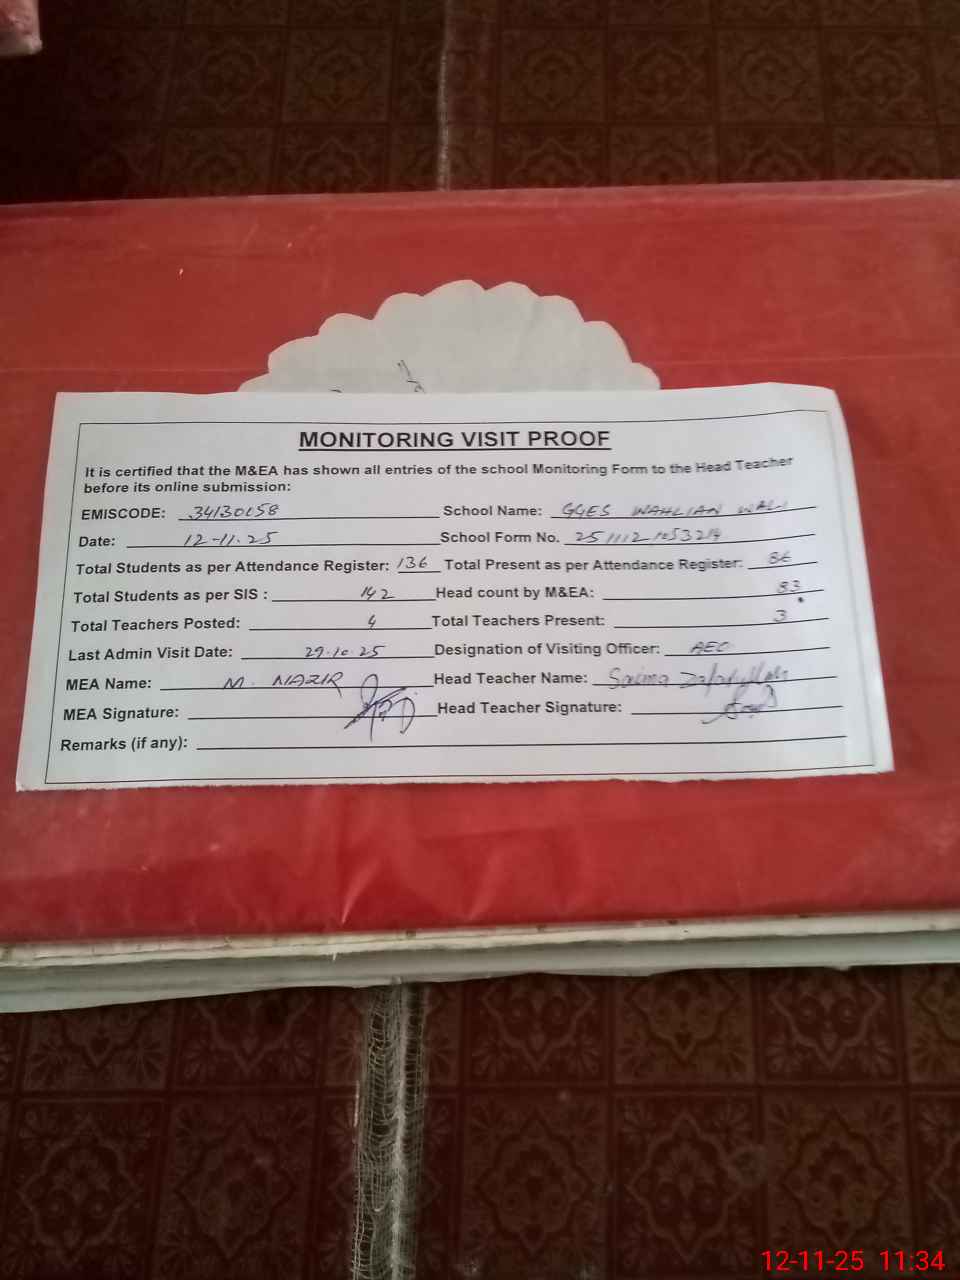 MONITORING VISIT PROOF
It is certified that the M&EA has shown all entries of the school Monitoring Form to the Head Teacher
before its online submission:
EMISCODE: 34130058 School Name: GGES WAHLIAN WALI
Date: 12-11-25 School Form No. 2511121053214
Total Students as per Attendance Register: 136 Total Present as per Attendance Register: 86
Total Students as per SIS : 142 Head count by M&EA: 83
Total Teachers Posted: 4 Total Teachers Present: 3
Last Admin Visit Date: 29-10-25 Designation of Visiting Officer: AEO
MEA Name: M. NAZIR Head Teacher Name: Saima Zafarullah
MEA Signature: Head Teacher Signature:
Remarks (if any):
12-11-25 11:34